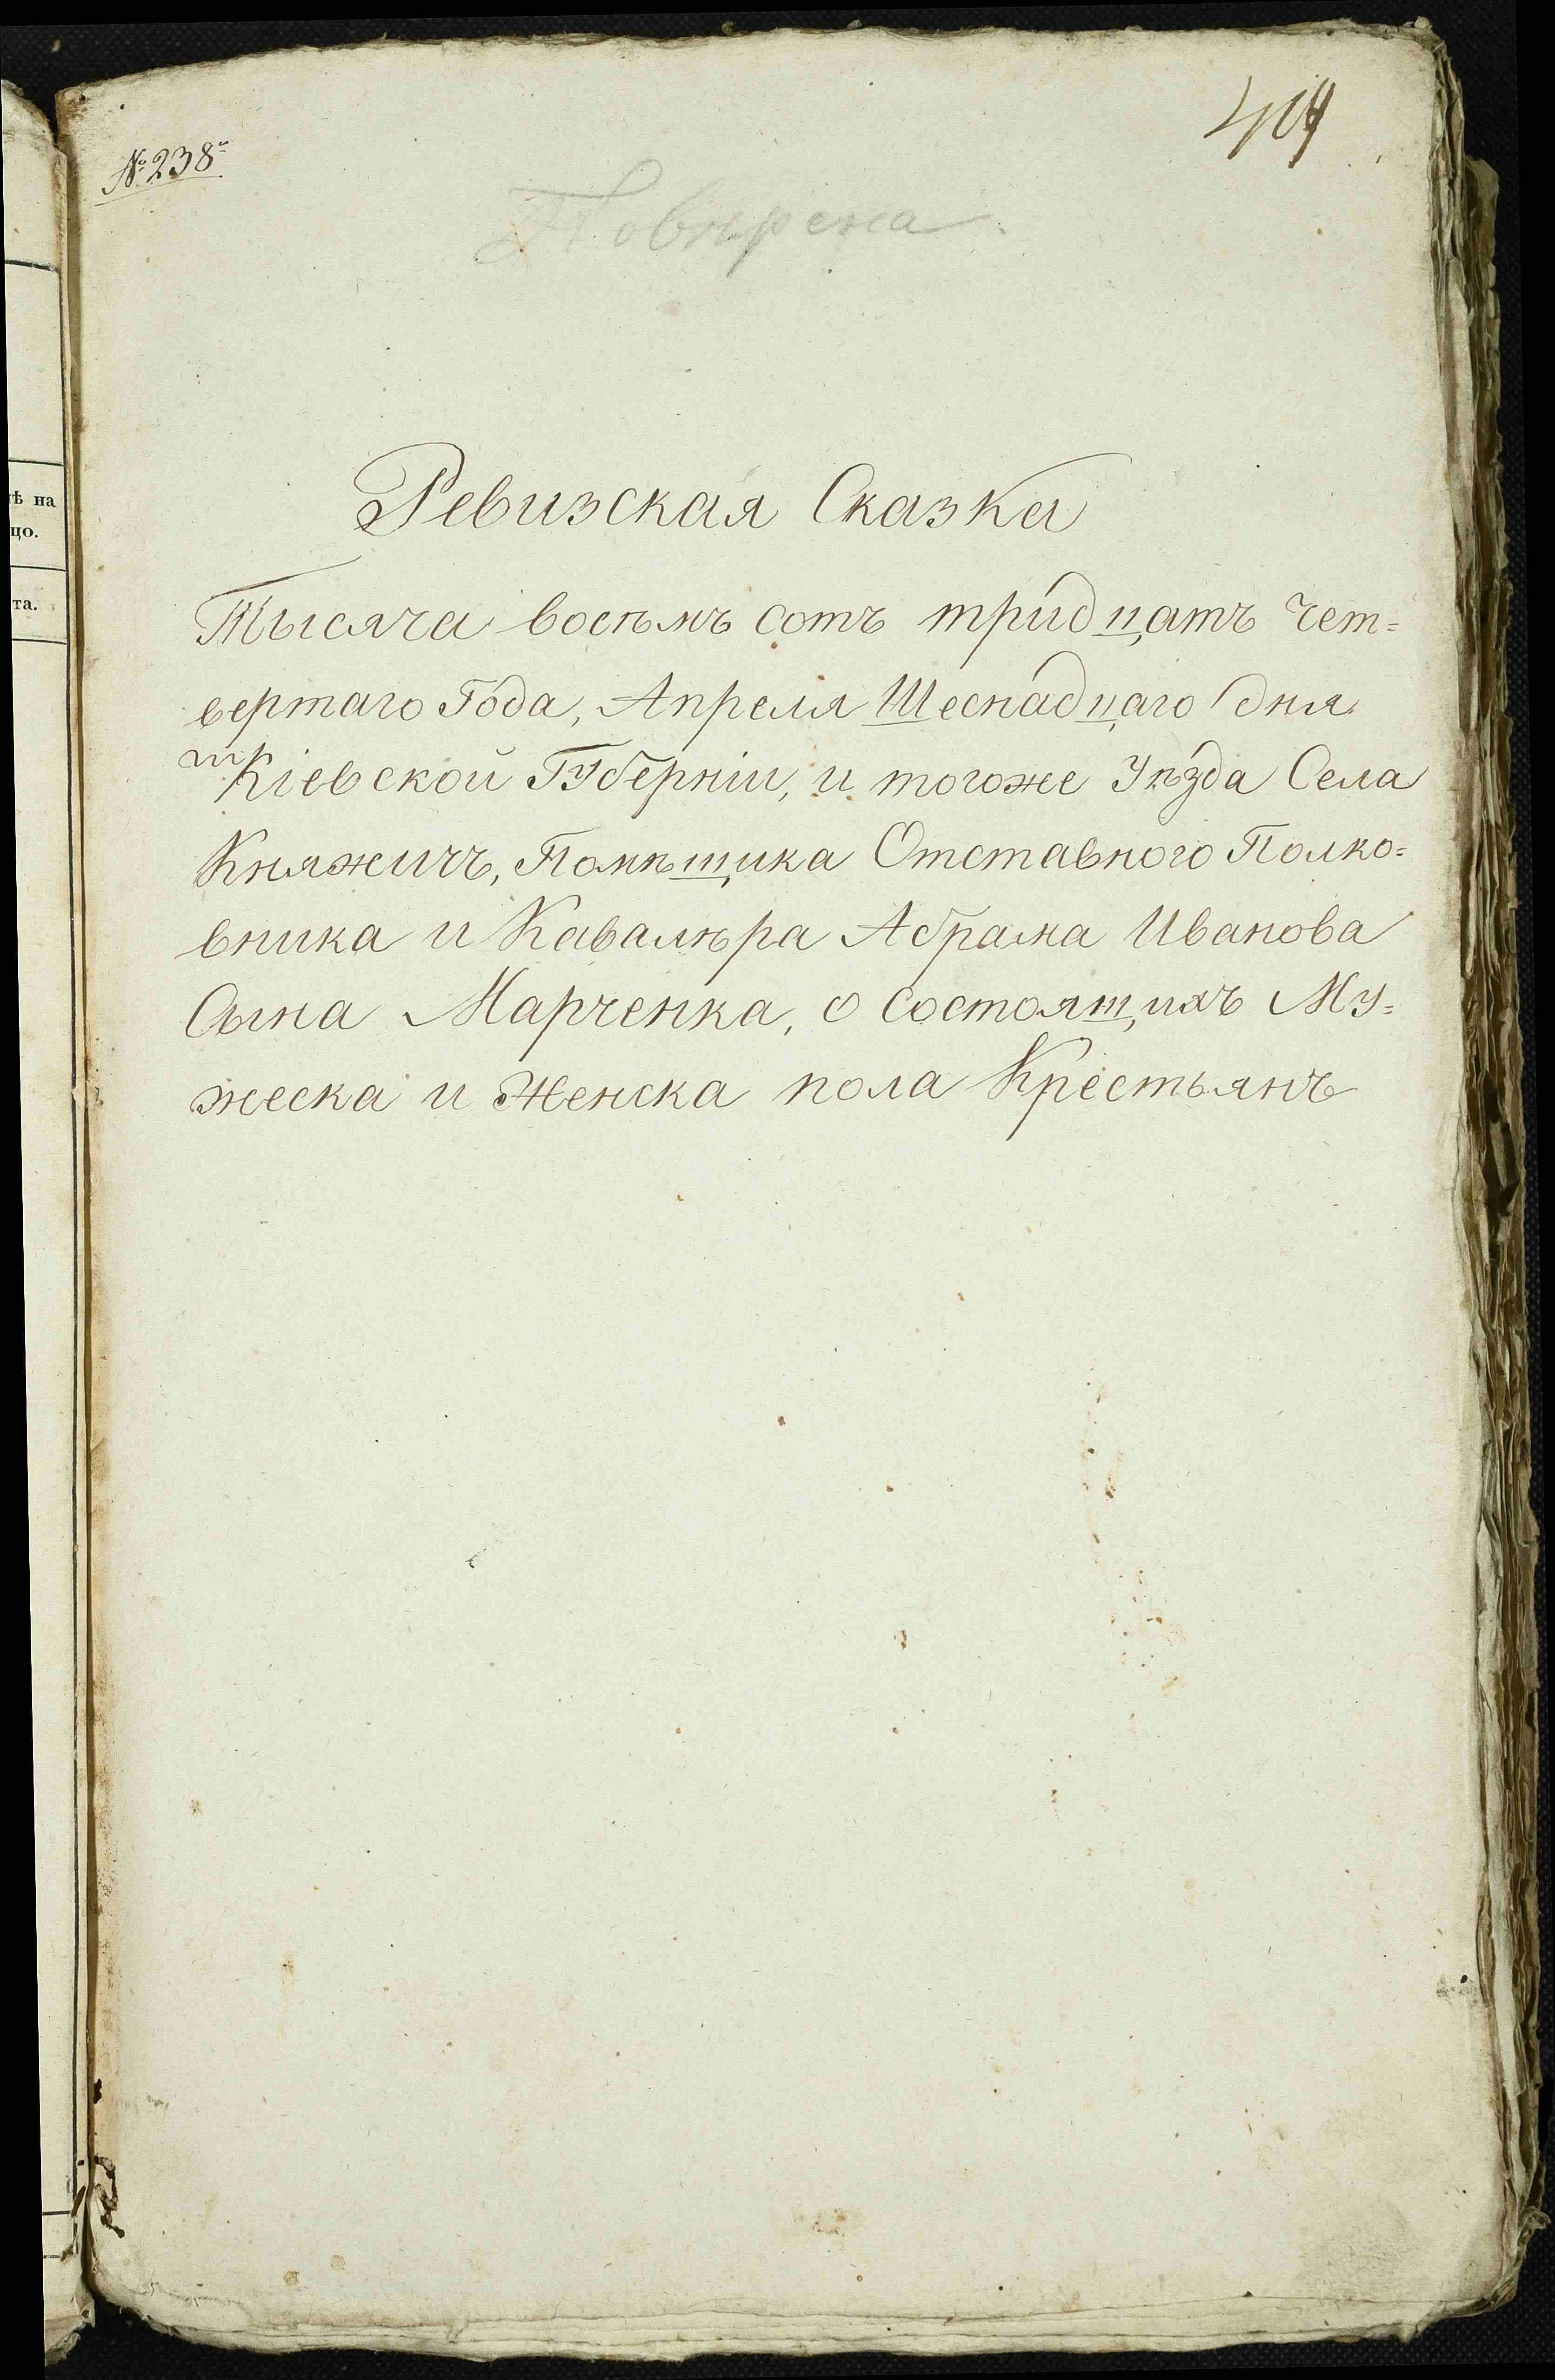 № 238
Повѣрена
Ревизская Сказка
Тысяча восѣмъ сотъ тридцатъ чет=
вертаго Года, Апреля Шеснадцаго дня
Кіевской Губерніи, и тогоже Уѣзда Села
Княжичъ, Помѣщика Отставного Полко=
вника и Кавалѣра Абрама Иванова
Сына Марченка, о состоящихъ Му=
жеска и Женска пола Крестьянъ
ѣ на
цо.
та.